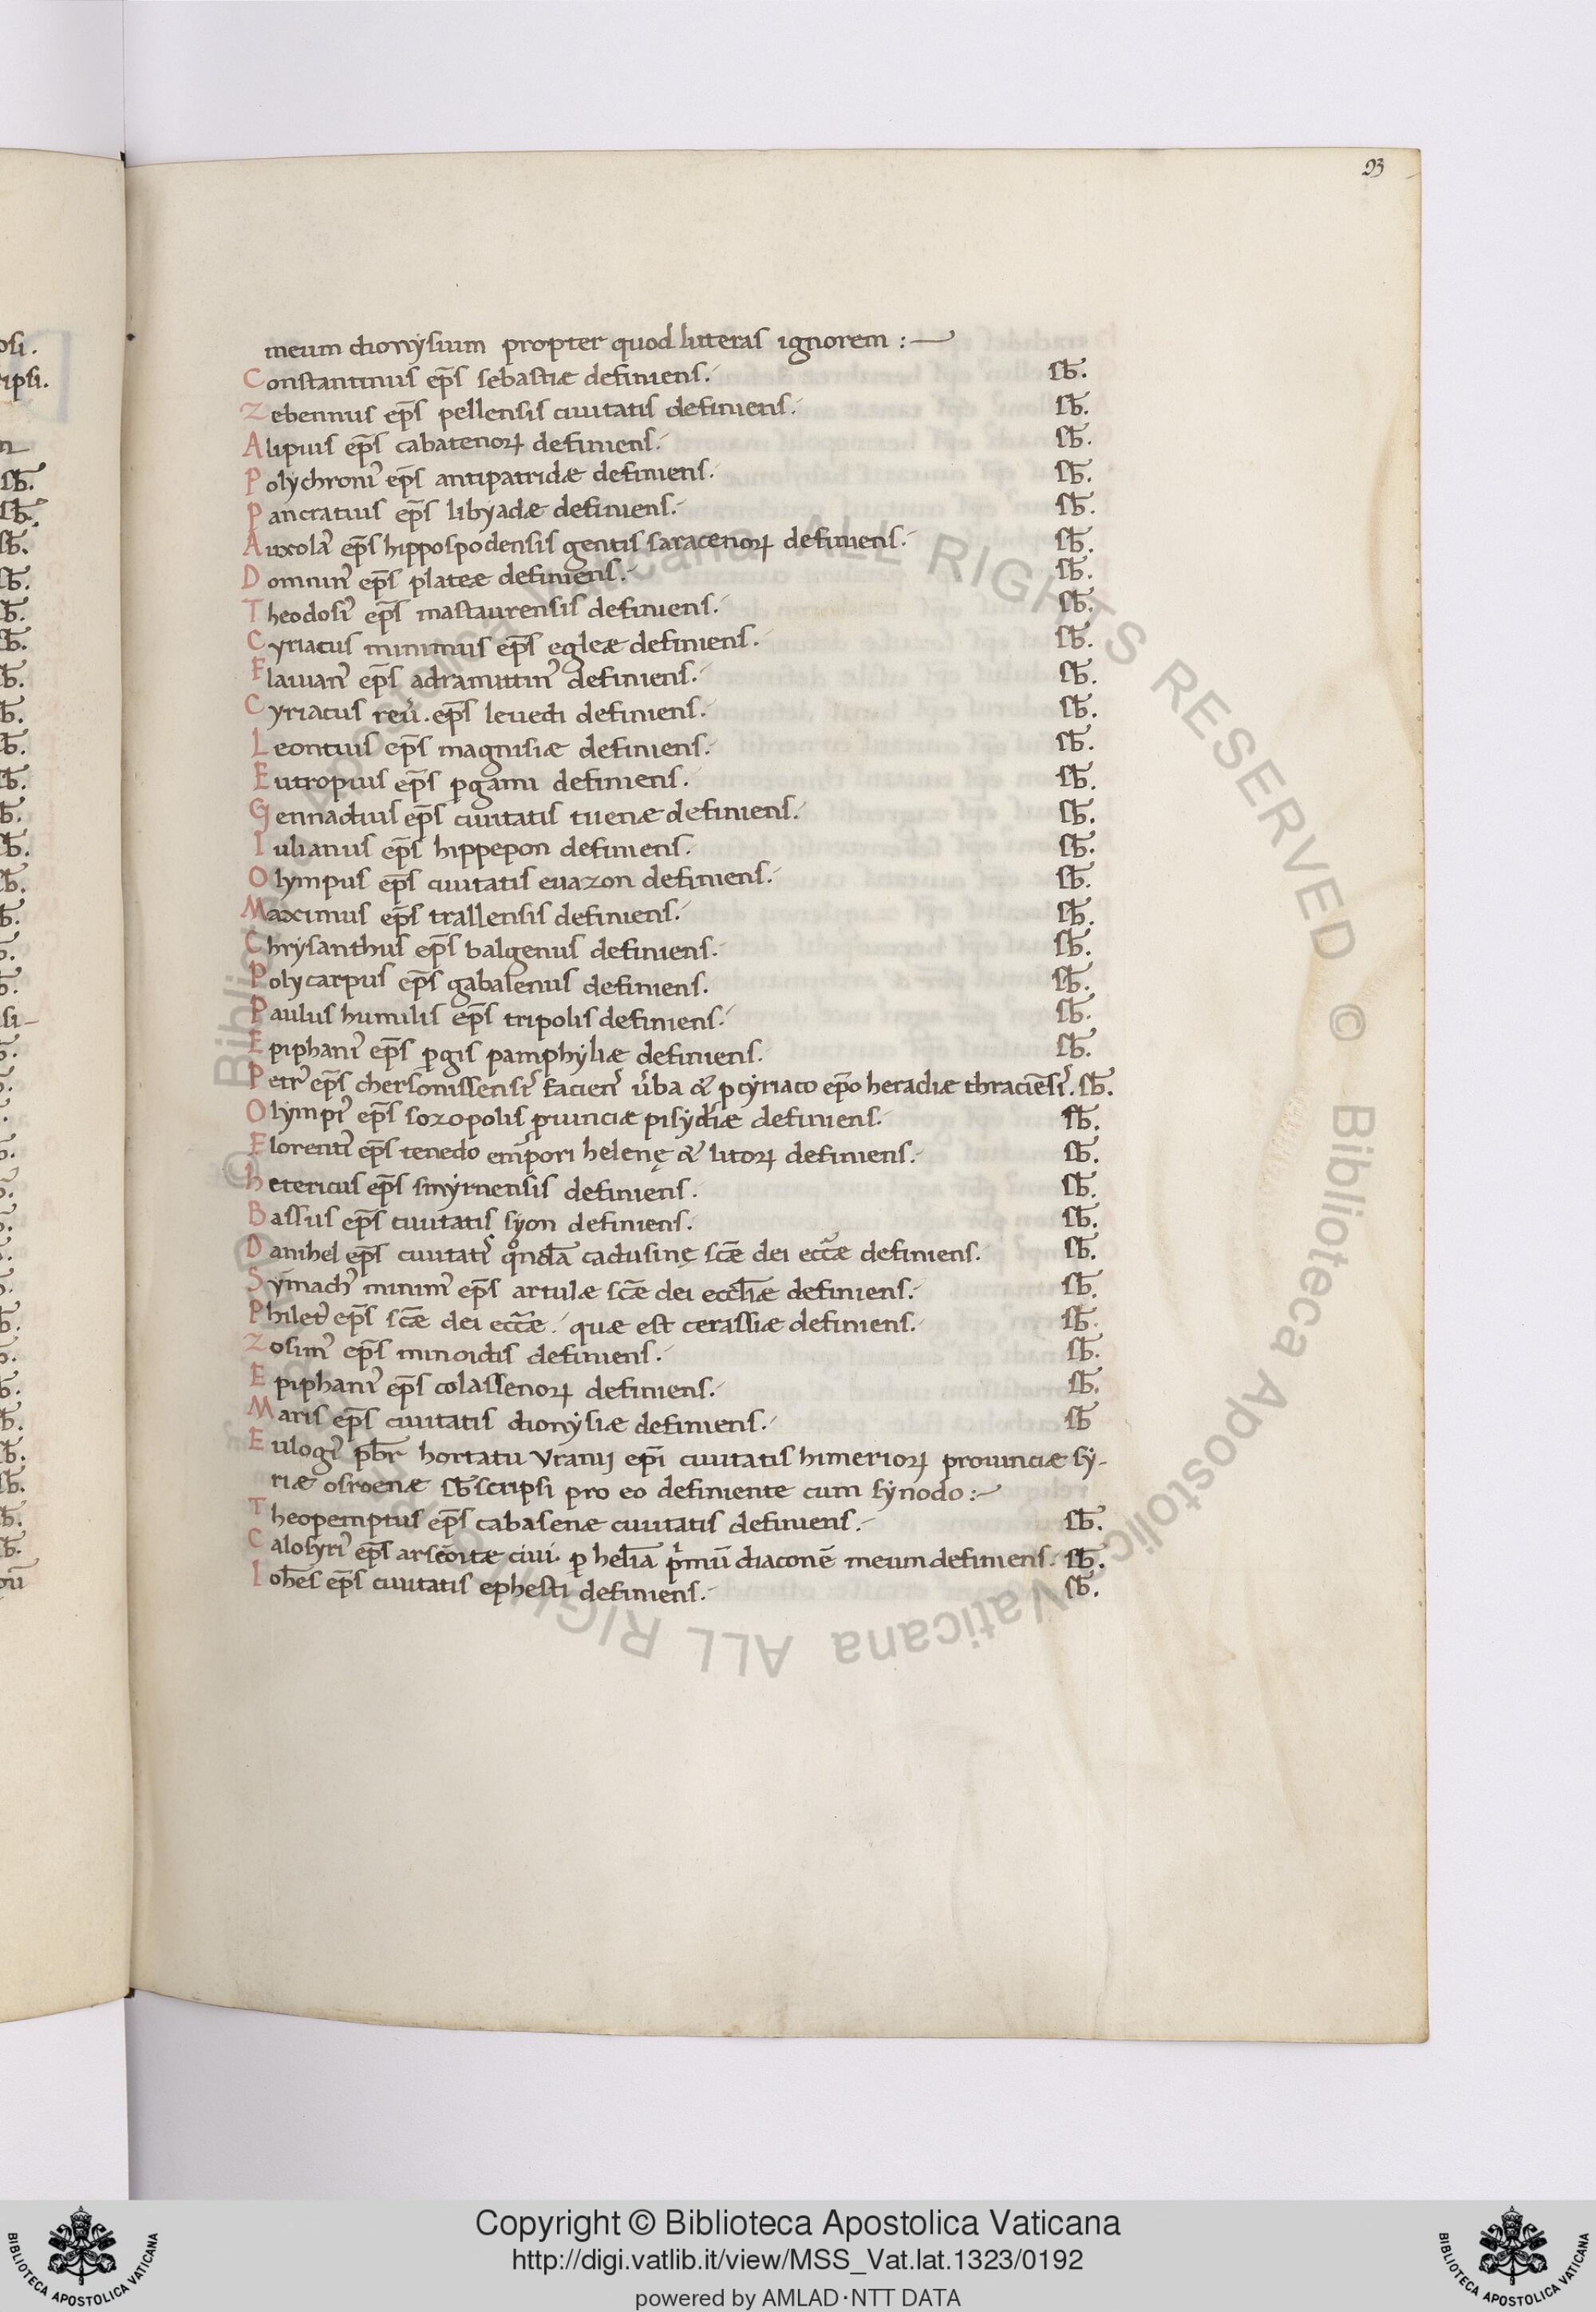 93
meum dionysium propter quod litteras ignorem :—
Constantinus ep̄s sebastiæ definiens. sƀ.
Zebennus ep̄s pellensis ciuitatis definiens. sƀ.
Alipius ep̄s cabatenoꝝ definiens. sƀ.
Polychroni᾽ ep̄s antipatridæ definiens. sƀ.
Pancratius ep̄s libyadæ definiens. sƀ.
Auxola᾽ ep̄s hippospodensis gentis saracenoꝝ definiens. sƀ.
Domnin᾽ ep̄s plateæ definiens. sƀ.
Theodosi᾽ ep̄s mastaurensis definiens. sƀ.
Cyriacus minimus ep̄s egleæ definiens. sƀ.
Flauian᾽ ep̄s adramittin᾽ definiens. sƀ.
Cyriacus reū. ep̄s leuedi definiens. sƀ.
Leontius ep̄s magnisiæ definiens. sƀ.
Eutropius ep̄s ꝑgami definiens. sƀ.
Gennadius ep̄s ciuitatis tienæ definiens. sƀ.
Iulianus ep̄s hippepon definiens. sƀ.
Olympus ep̄s ciuitatis euazon definiens. sƀ.
Maximus ep̄s trallensis definiens. sƀ.
Chrysanthus ep̄s balgenus definiens. sƀ.
Polycarpus ep̄s gabalenus definiens. sƀ.
Paulus humilis ep̄s tripolis definiens. sƀ.
Epiphani᾽ ep̄s ꝑgis pamphyliæ definiens. sƀ.
Petr᾽ ep̄s chersonissensis᾽ facien᾽ u᾽ba & ꝑ cyriaco ep̄o heracliæ thraciēsi᾽. sƀ.
Olympi᾽ ep̄s sozopolis ꝓuinciæ pisydiæ definiens. sƀ.
Florenti᾽ ep̄s tenedo em̄pori helenę & litoꝝ definiens. sƀ.
hetericus ep̄s smyrnensis definiens. sƀ.
Bassus ep̄s ciuitatis syon definiens. sƀ.
Danihel ep̄s ciuitati᾽ qͦndā cadusinę sc̄æ dei ecc̄æ definiens. sƀ.
Symach᾽ minim᾽ ep̄s artulæ sc̄æ dei eccl̄iæ definiens. sƀ.
Philet᾽ ep̄s sc̄æ dei ecc̄æ. quæ est cerassiæ definiens. sƀ.
Zosim᾽ ep̄s minoidis definiens. sƀ.
Epiphani᾽ ep̄s colassenoꝝ definiens. sƀ.
Maris ep̄s ciuitatis dionysiæ definiens. sƀ
Eulogi᾽ pƀr hortatu vranij ep̄i ciuitatis himerioꝝ prouinciæ sy-
riæ osroenæ sƀscripsi pro eo definiente cum synodo :—
Theopemptus ep̄s cabasenæ ciuitatis definiens. sƀ.
Calosyri᾽ ep̄s arsēoitæ ciui. ꝑ heliā pͥmū diaconē meum definiens. sƀ.
Ioh̄es ep̄s ciuitatis ephesti definiens. sƀ.
© Biblioteca Apostolica Vaticana ALL RIGHTS RESERVED © Biblioteca Apostolica Vaticana ALL RIGHTS RESERVED
Copyright © Biblioteca Apostolica Vaticana
http://digi.vatlib.it/view/MSS_Vat.lat.1323/0192
powered by AMLAD·NTT DATA
BIBLIOTECA APOSTOLICA VATICANA
BIBLIOTECA APOSTOLICA VATICANA